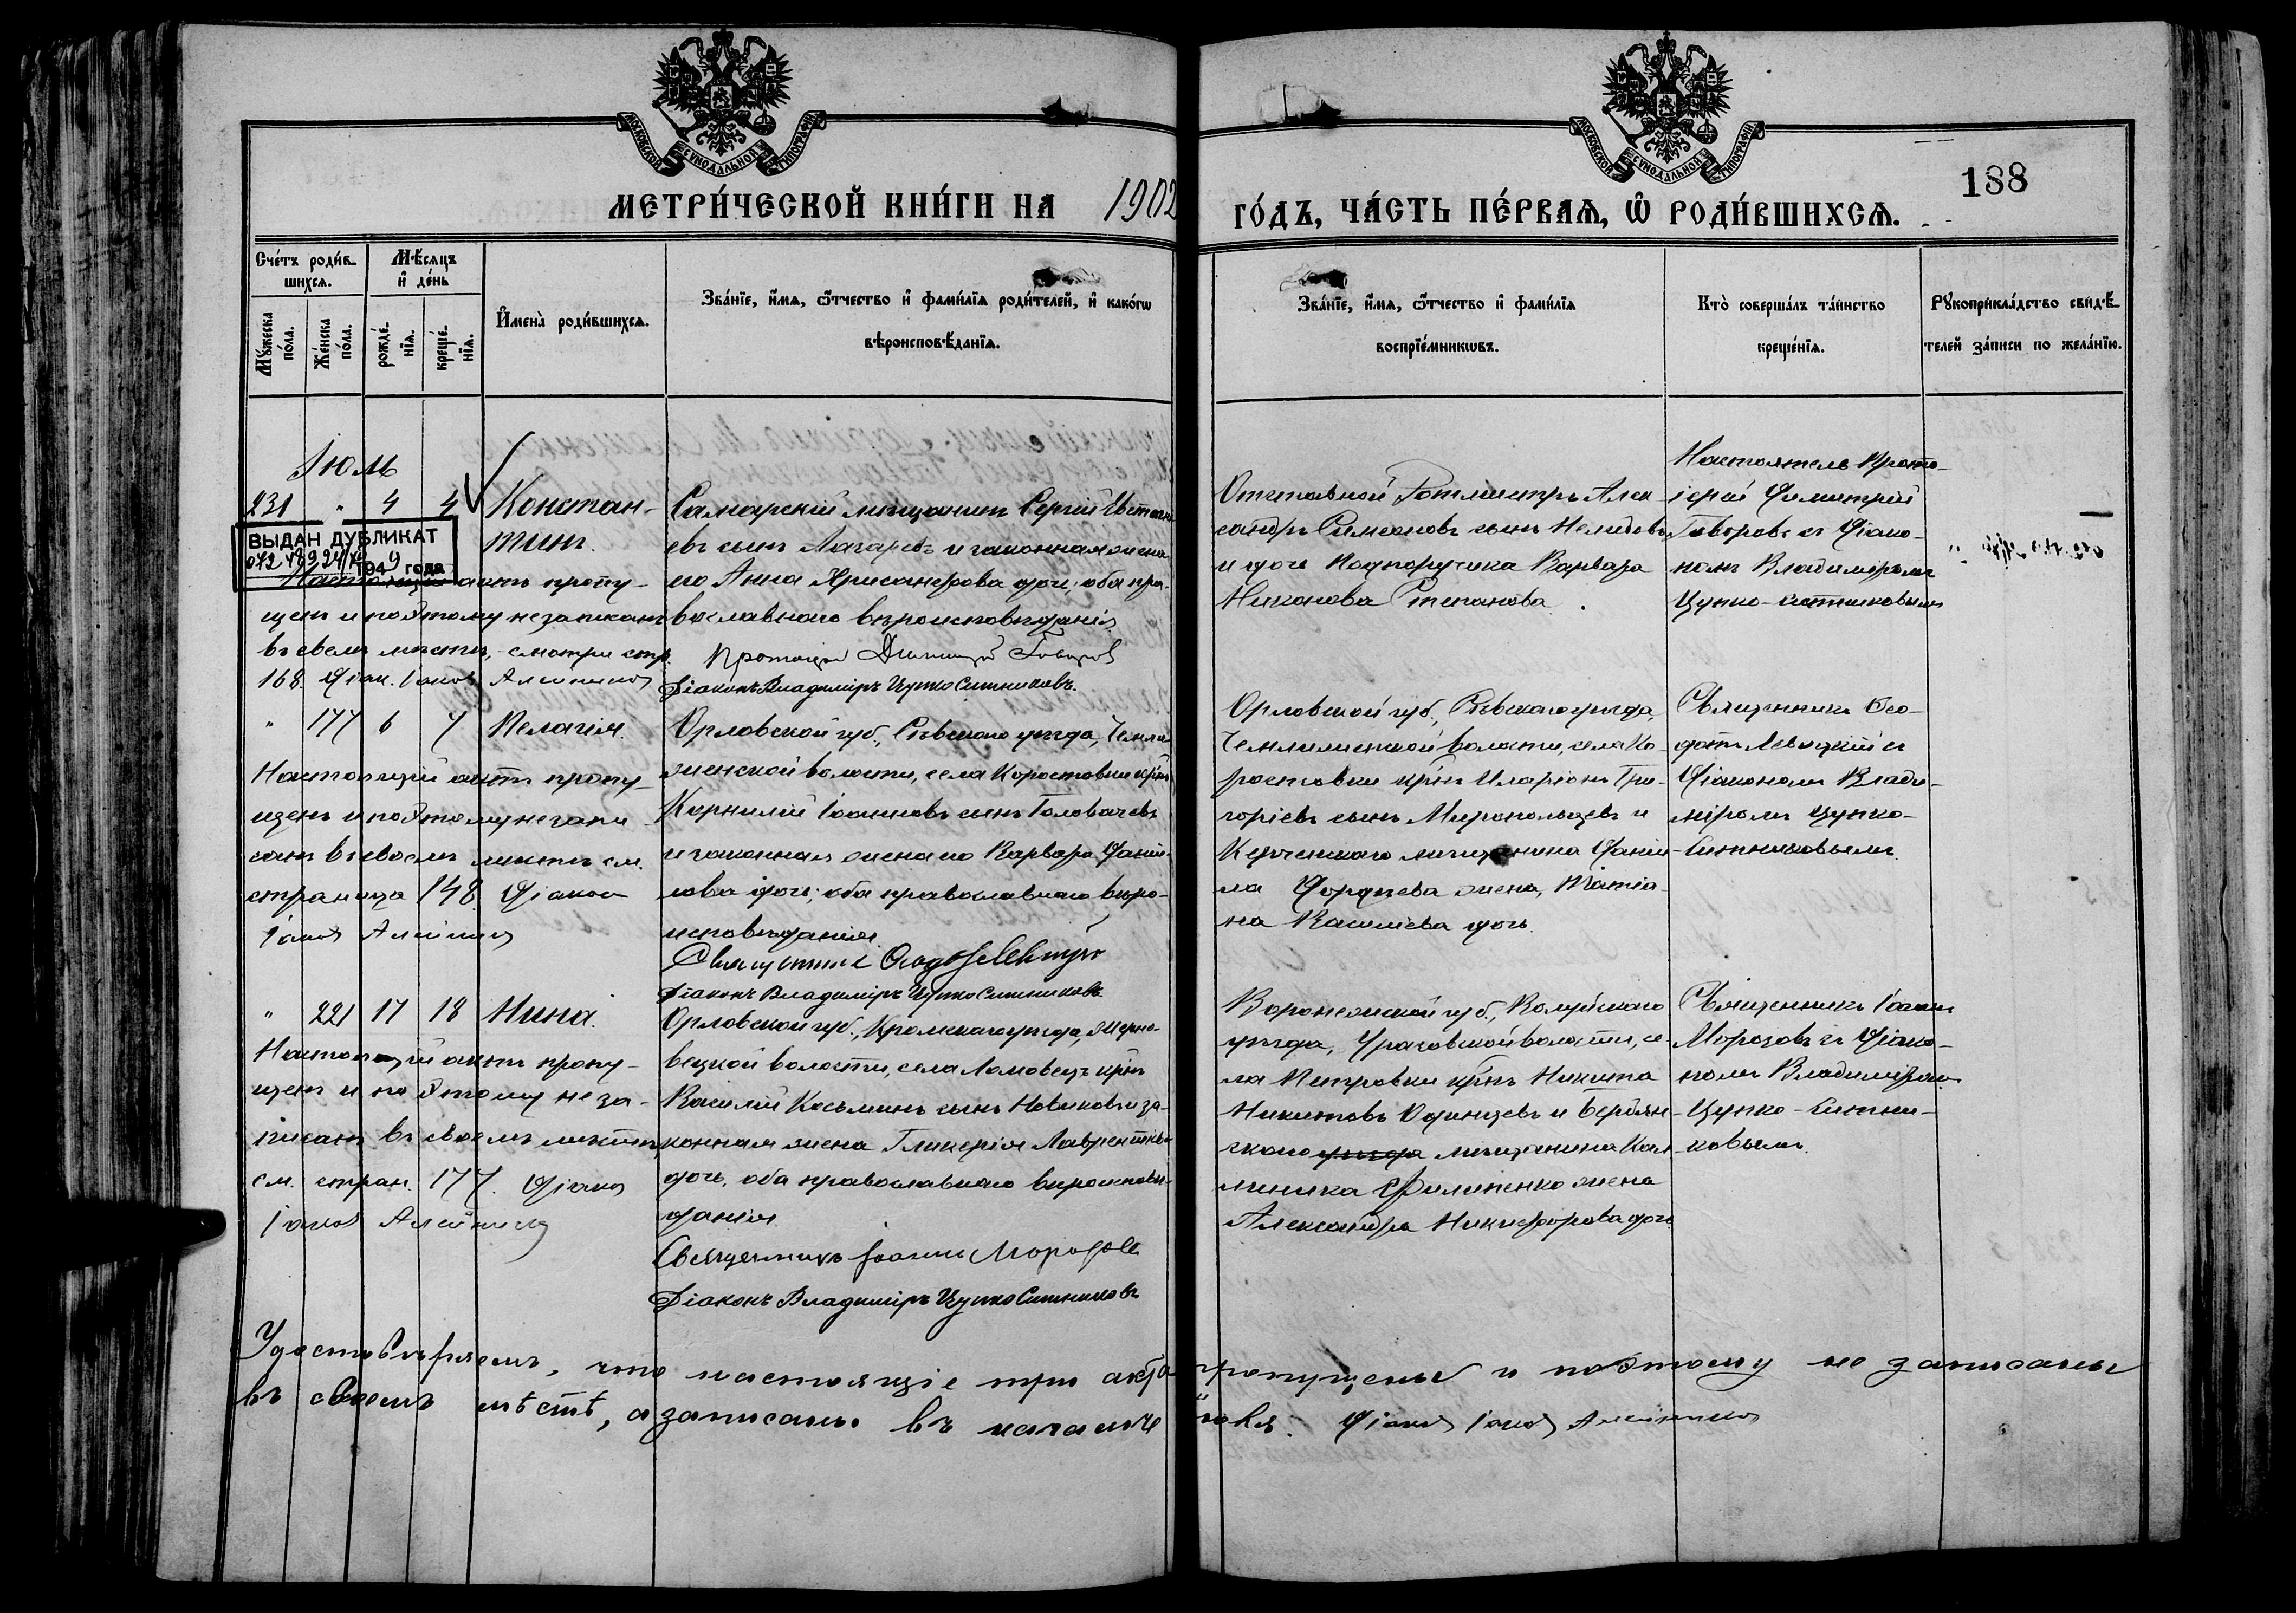 МОСКОВСКОЙ СѴНОДАЛЬНОЙ ТИПОГРАФІИ
МОСКОВСКОЙ СѴНОДАЛЬНОЙ ТИПОГРАФІИ
188
МЕТРИ́ЧЕСКОЙ КНИ́ГИ НА 1902
ГО́ДЪ, ЧА́СТЬ ПЕ́РВАЯ, Ѡ РОДИ́ВШИХСЯ.
Сче́тъ роди́в-
шихся.
Мꙋжеска по́ла.
Же́нска по́ла.
Мѣ́сяцъ
и҆ де́нь
рожде́-
нїя.
креще́-
нїя.
И҆мена̀ роди́вшихся.
Зва́нїе, и҆́мя, ѻ҆́тчество и҆ фами́лїя роди́телей, и҆ како́гѡ
вѣроисповѣ́данїя.
Зва́нїе, и҆́мя, ѻ҆́тчество и҆ фами́лїя
воспрїе́мникѡвъ.
Кто̀ соверша́лъ та́инство
креще́нїя.
Рꙋкоприкла́дство свидѣ́-
телей за́писи по жела́нїю.
Іюль
231 " 4 4 Констан-
тинъ.
ВЫДАН ДУБЛИКАТ
1949 года
Настоящій актъ пропу-
щенъ и поэтому не записанъ
въ своемъ мѣстѣ, смотри стр.
168. Діак. Іаковъ Алейников
Самарскій мѣщанинъ Сергій
евъ сынъ Лагаревъ и законная жена
его Анна Хрисанфова дочь; оба пра-
вославнаго вѣроисповѣданія.
Протоіерей Димитрій Говоров
Діаконъ Владиміръ Цупко Ситниковъ.
Отставной Ротмистръ Алек-
сандръ Симеоновъ сынъ Нелидовъ
и дочь Подпоручика Варвара
Никонова Степанова.
Настоятель Прото-
іерей Димитрій
Говоровъ съ Діако-
номъ Владиміромъ
Цупко-Ситниковымъ
" 177 6 7 Пелагія.
Настоящій актъ пропу-
щенъ и поэтому не запи-
санъ въ своемъ мѣстѣ см.
страница 148. Діакон
Іаков Алейников
Орловской губ., Сѣвскаго уѣзда,
женской волости, села Коростовки крнъ
Корнилій Іоанновъ сынъ Головачевъ
и законная жена его Варвара Даніи-
лова дочь; оба православнаго вѣро-
исповѣданія.
Священникъ
Діаконъ Владиміръ Цупко Ситниковъ
Орловской губ., Сѣвскаго уѣзда,
волости, села Ко-
ростовки крнъ Иларіонъ Гри-
горіевъ сынъ Миропольцевъ и
Керченскаго мѣщанина Дании-
ла жена, Татіа-
на Василіева дочь.
Священникъ Ѳео-
дотъ Левицкій съ
Діакономъ Влади-
міромъ Цупко-
Ситниковымъ.
" 221 17 18 Нина.
Настоящій актъ пропу-
щенъ и поэтому не за-
писанъ въ своемъ мѣстѣ
см. стран. 177. Діакон
Іаков Алейников
Орловской губ., Кромскаго уѣзда,
вецкой волости, села Ломовецъ крнъ
Василій Косьминъ сынъ Новиковъ и за-
конная жена Гликерія Лаврентіева
дочь, оба православнаго вѣроисповѣ-
данія.
Священникъ Іоаннъ Морозовъ
Діаконъ Владиміръ Цупко Ситниковъ
Воронежской губ., Валуйскаго
уѣзда, Уразовской волости, се-
ла Петровки крнъ Никита
Никитовъ Одинцевъ и Бердян-
скаго уѣзда мѣщанина Кал-
линика Филипенко жена
Александра Никифорова дочь.
Священникъ Іоаннъ
Морозовъ съ Діако-
номъ Владиміромъ
Цупко-Ситни-
ковымъ.
Удостовѣряемъ, что настоящіе три акта пропущены и поэтому не записаны
въ своемъ мѣстѣ, а записаны въ началѣ іюля. Діакон Іаков Алейников